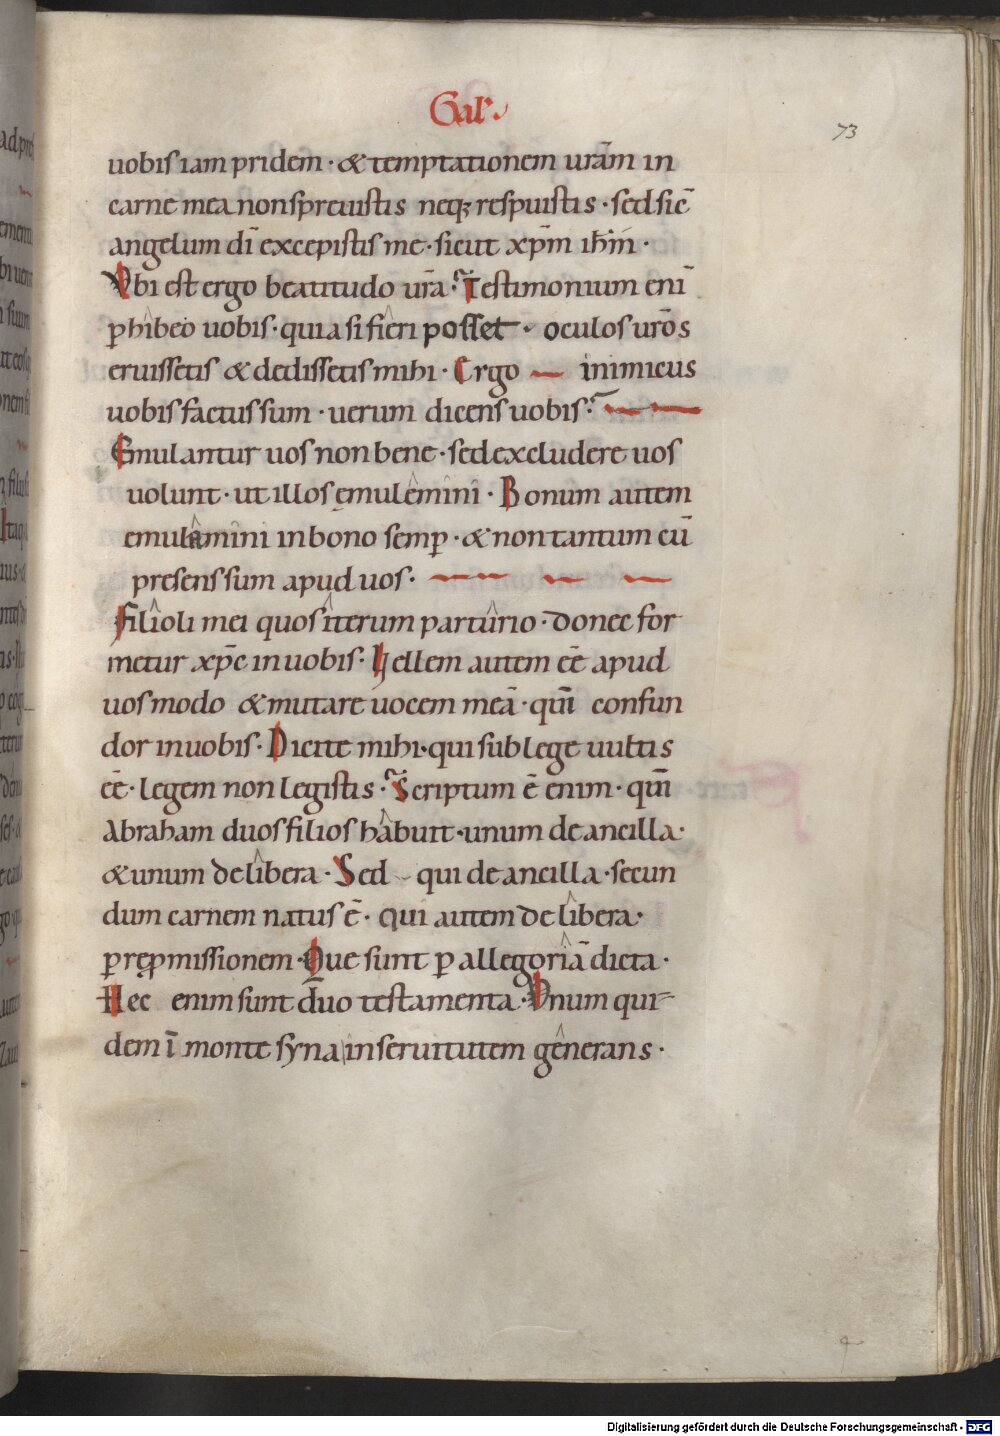 Gal'
73
uobis iam pridem · & temptationem urãm in
carne mea non spreuistis neq; respuistis · sed sic̄
angelum dī excepistis me · sicut xp̄m ih̄m ·
Vbi est ergo beatitudo ur̄a ? Testimonium enī
ꝑhibeo uobis · quia si fieri posset · oculos ur̄os
eruissetis & dedissetis mihi · Ergo inimicus
uobis factus sum · uerum dicens uobis ?
Emulantur uos non bene · sed excludere uos
uolunt · ut illos ęmulemini · Bonum autem
emulamini in bono semꝑ · & non tantum cū
presens sum apud uos ·
Filioli mei quos iterum parturio · donec for
metur xp̄c in uobis · Uellem autem eē apud
uos modo & mutare uocem meā · qm̄ confun
dor in uobis · Dicite mihi · qui sub lege uultis
eē · legem non legistis ? Scriptum ē enim · qm̄
Abraham duos filios habuit · unum de ancilla ·
& unum de libera · Sed qui de ancilla · secun
dum carnem natus ē · qui autem de libera ·
ꝑ reꝓmissionem · Que sunt ꝑ allegoriā dicta ·
Hec enim sunt duo testamenta · Vnum qui-
dem ī monte syna in seruitutem generans ·
Digitalisierung gefördert durch die Deutsche Forschungsgemeinschaft - DFG